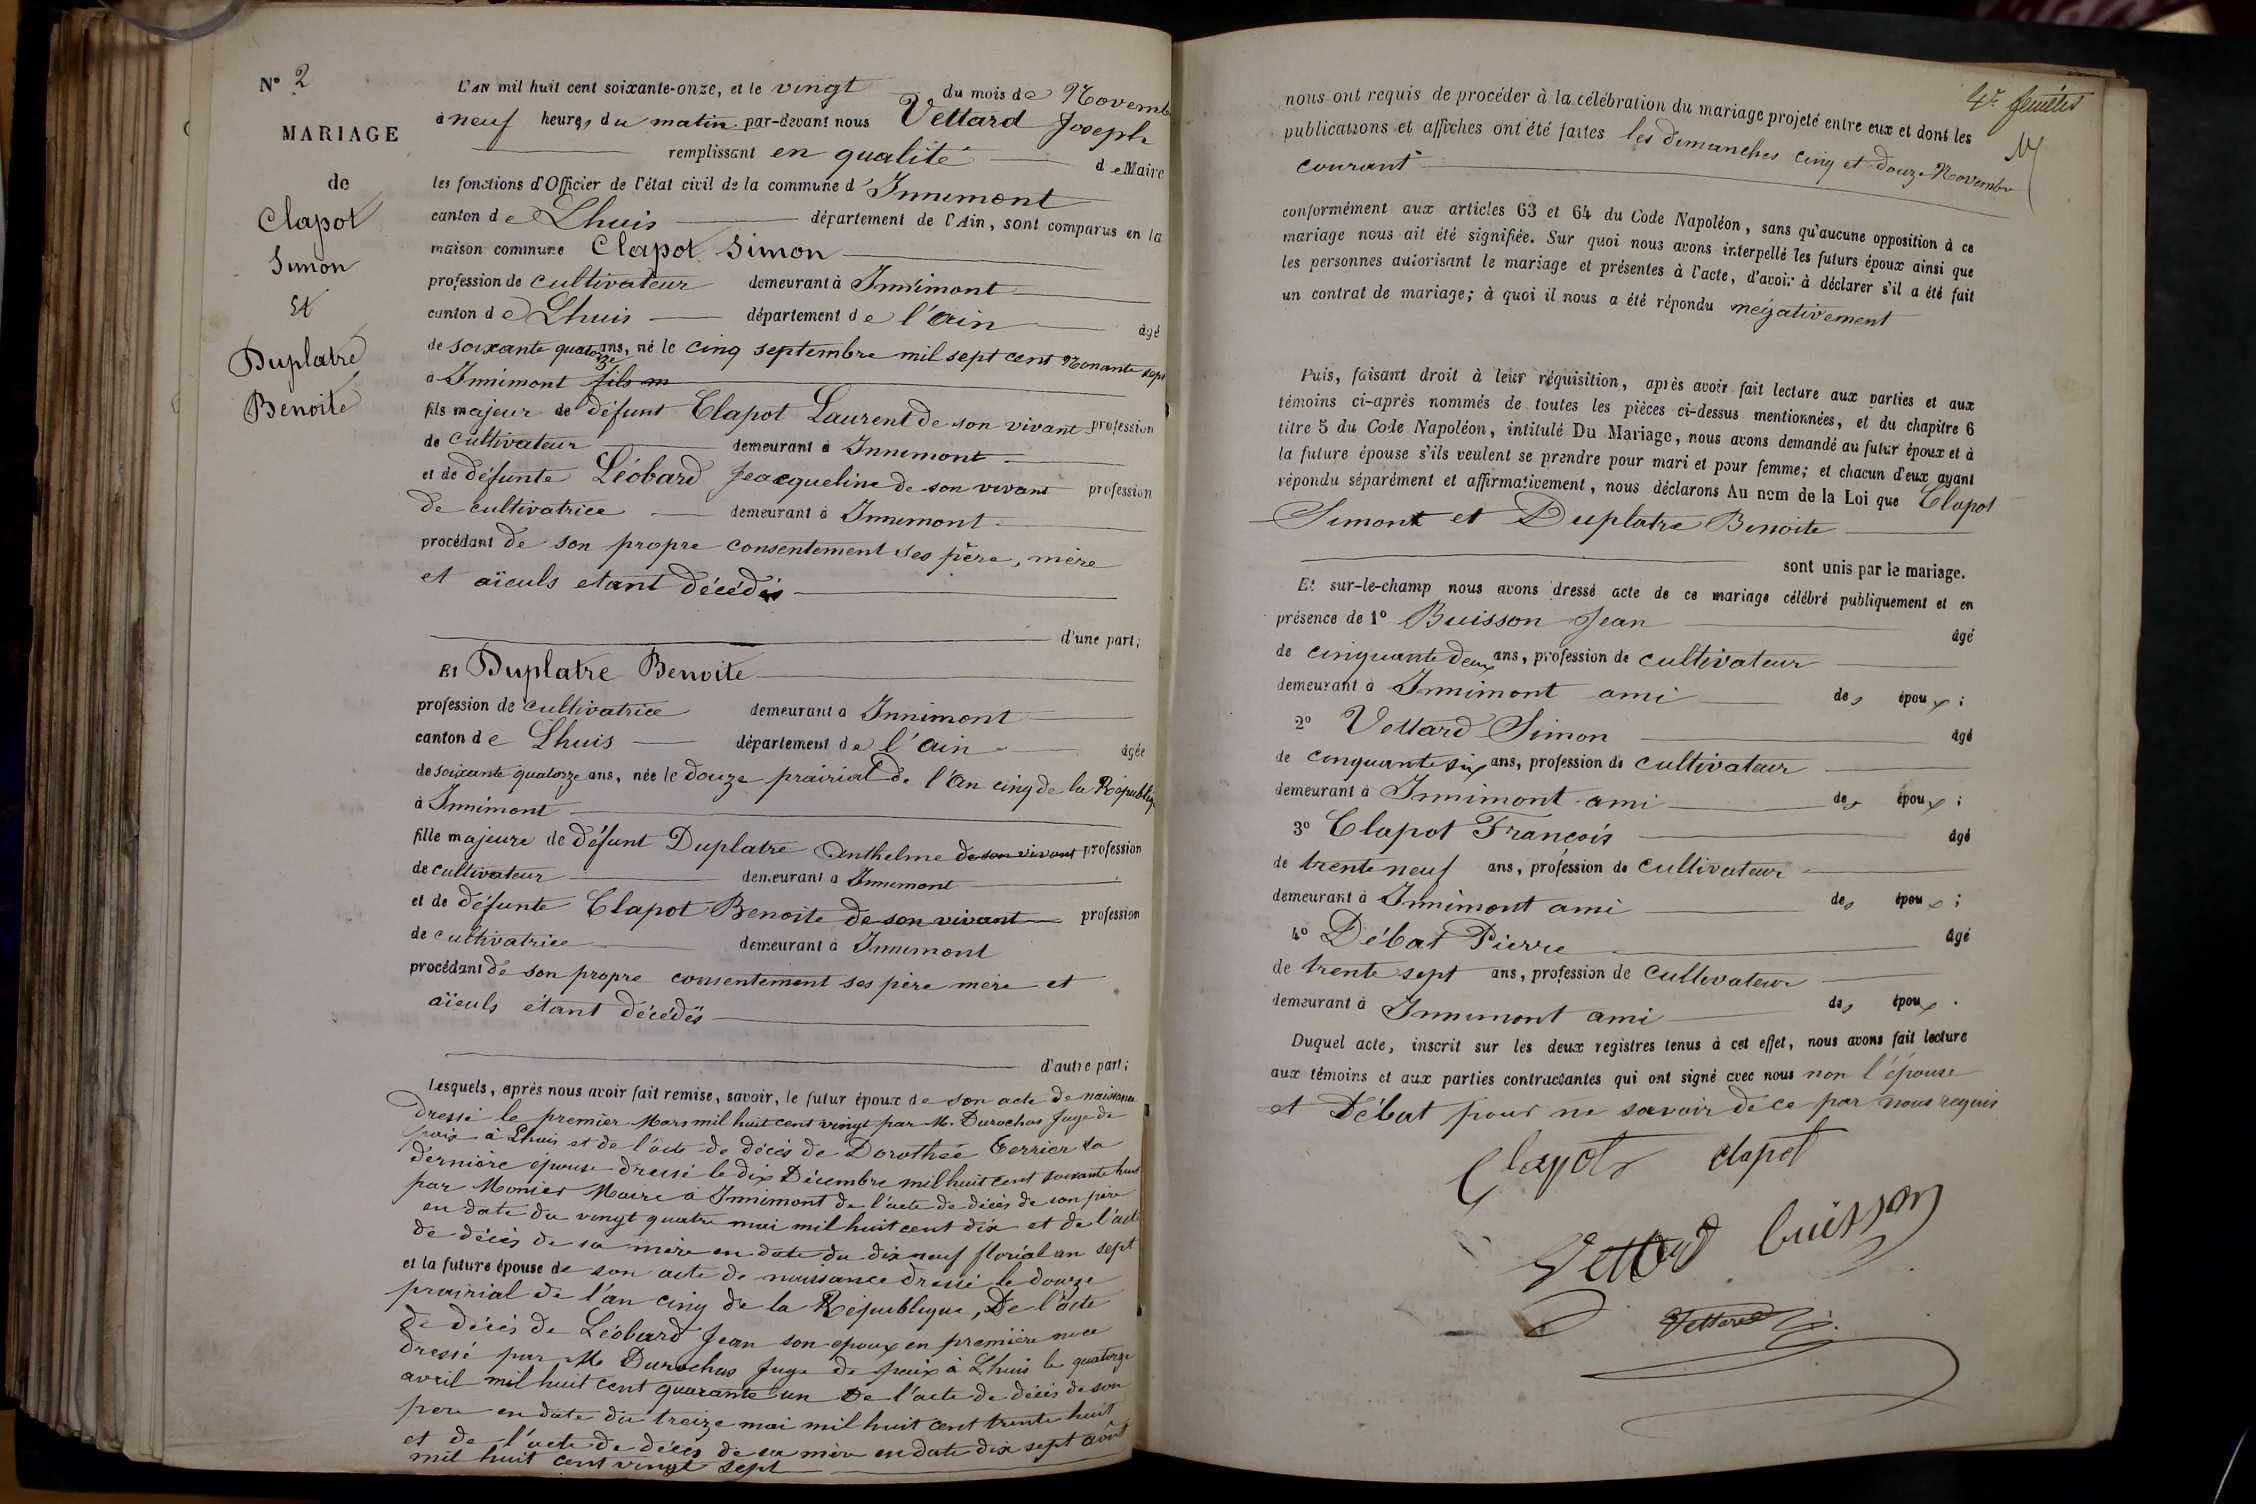 N° 2
MARIAGE
de
Clapot
Simon
Et
Duplatre
Benoite
L'AN mil huit cent soixante-onze, et le vingt du mois de Novemb
à neuf heures du matin par-devant nous Vettard Joseph
remplissant en qualité de Maire
les fonctions d'Officier de l'état civil de la commune d'Innimont
canton de Lhuis département de l'Ain, sont comparus en la
maison commune Clapot Simon
profession de cultivateur demeurant à Innimont
canton de Lhuis département de l'Ain âgé
de soixante quatorze ans, né le cinq septembre mil sept cent Nonante sept
à Innimont fils m
fils majeur de défunt Clapot Laurent de son vivant profession
de cultivateur demeurant à Innimont
et de défunte Léobard Jeacqueline de son vivant profession
de cultivatrice demeurant à Innimont
procédant de son propre consentement ses père, mère
et aïeuls etant décédés
d'une part;
Et Duplatre Benoite
profession de cultivatrice demeurant à Innimont
canton de Lhuis département de l'Ain âgée
de soixante quatorze ans, née le douze prairial de l'An cinq de la Républiq
à Innimont
fille majeure de défunt Duplatre Anthelme de son vivant profession
de cultivateur demeurant à Innimont
et de défunte Clapot Benoite de son vivant profession
de cultivatrice demeurant à Innimont
procédant de son propre consentement ses père mère et
aïeuls étant décédés
d'autre part;
Lesquels, après nous avoir fait remise, savoir, le futur époux de son acte de naissance
dressé le premier Mars mil huit cent vingt par M. Durochas Juge de
paix à Lhuis et de l'acte de décès de Dorothée Terrier sa
dernière épouse dressé le dix Décembre mil huit cent soixante huit
par Monier Maire à Innimont de l'acte de décès de son père
en date du vingt quatre mai mil huit cent dix et de l'acte
de décès de sa mère en date du dix neuf floréal an sept
et la future épouse de son acte de naissance dressé le douze
prairial de l'an cinq de la République, De l'acte
de décès de Léobard Jean son epoux en première noce
dressé par Me Durochas Juge de paix à Lhuis le quatorze
avril mil huit cent quarante un De l'acte de décès de son
père en date du treize mai mil huit cent trente huit
et de l'acte de décès de sa mère en date dix sept août
mil huit cent vingt sept
4e feuillet
nous ont requis de procéder à la célébration du mariage projeté entre eux et dont les
publications et affiches ont été faites les dimanches cinq et douze Novembre
courant
conformément aux articles 63 et 64 du Code Napoléon, sans qu'aucune opposition à ce
mariage nous ait été signifiée. Sur quoi nous avons interpellé les futurs époux ainsi que
les personnes autorisant le mariage et présentes à l'acte, d'avoir à déclarer s'il a été fait
un contrat de mariage; à quoi il nous a été répondu négativement
Puis, faisant droit à leur réquisition, après avoir fait lecture aux parties et aux
témoins ci-après nommés de toutes les pièces ci-dessus mentionnées, et du chapitre 6
titre 5 du Code Napoléon, intitulé Du Mariage, nous avons demandé au futur époux et à
la future épouse s'ils veulent se prendre pour mari et pour femme; et chacun d'eux ayant
répondu séparément et affirmativement, nous déclarons Au nom de la Loi que Clapot
Simont et Duplatre Benoite
sont unis par le mariage.
Et sur-le-champ nous avons dressé acte de ce mariage célébré publiquement et en
présence de 1° Buisson Jean âgé
de cinquante deux ans, profession de cultivateur
demeurant à Innimont ami des époux;
2° Vettard Simon âgé
de conquante six ans, profession de cultivateur
demeurant à Innimont ami des époux;
3° Clapot François âgé
de trente neuf ans, profession de cultivateur
demeurant à Innimont ami des époux;
4° Débat Pierre âgé
de trente sept ans, profession de cultivateur
demeurant à Innimont ami des époux.
Duquel acte, inscrit sur les deux registres tenus à cet effet, nous avons fait lecture
aux témoins et aux parties contractantes qui ont signé avec nous non l'épouse
et Débat pour ne savoir de ce par nous requis
Clapot clapot
Vettard buisson
Vettard